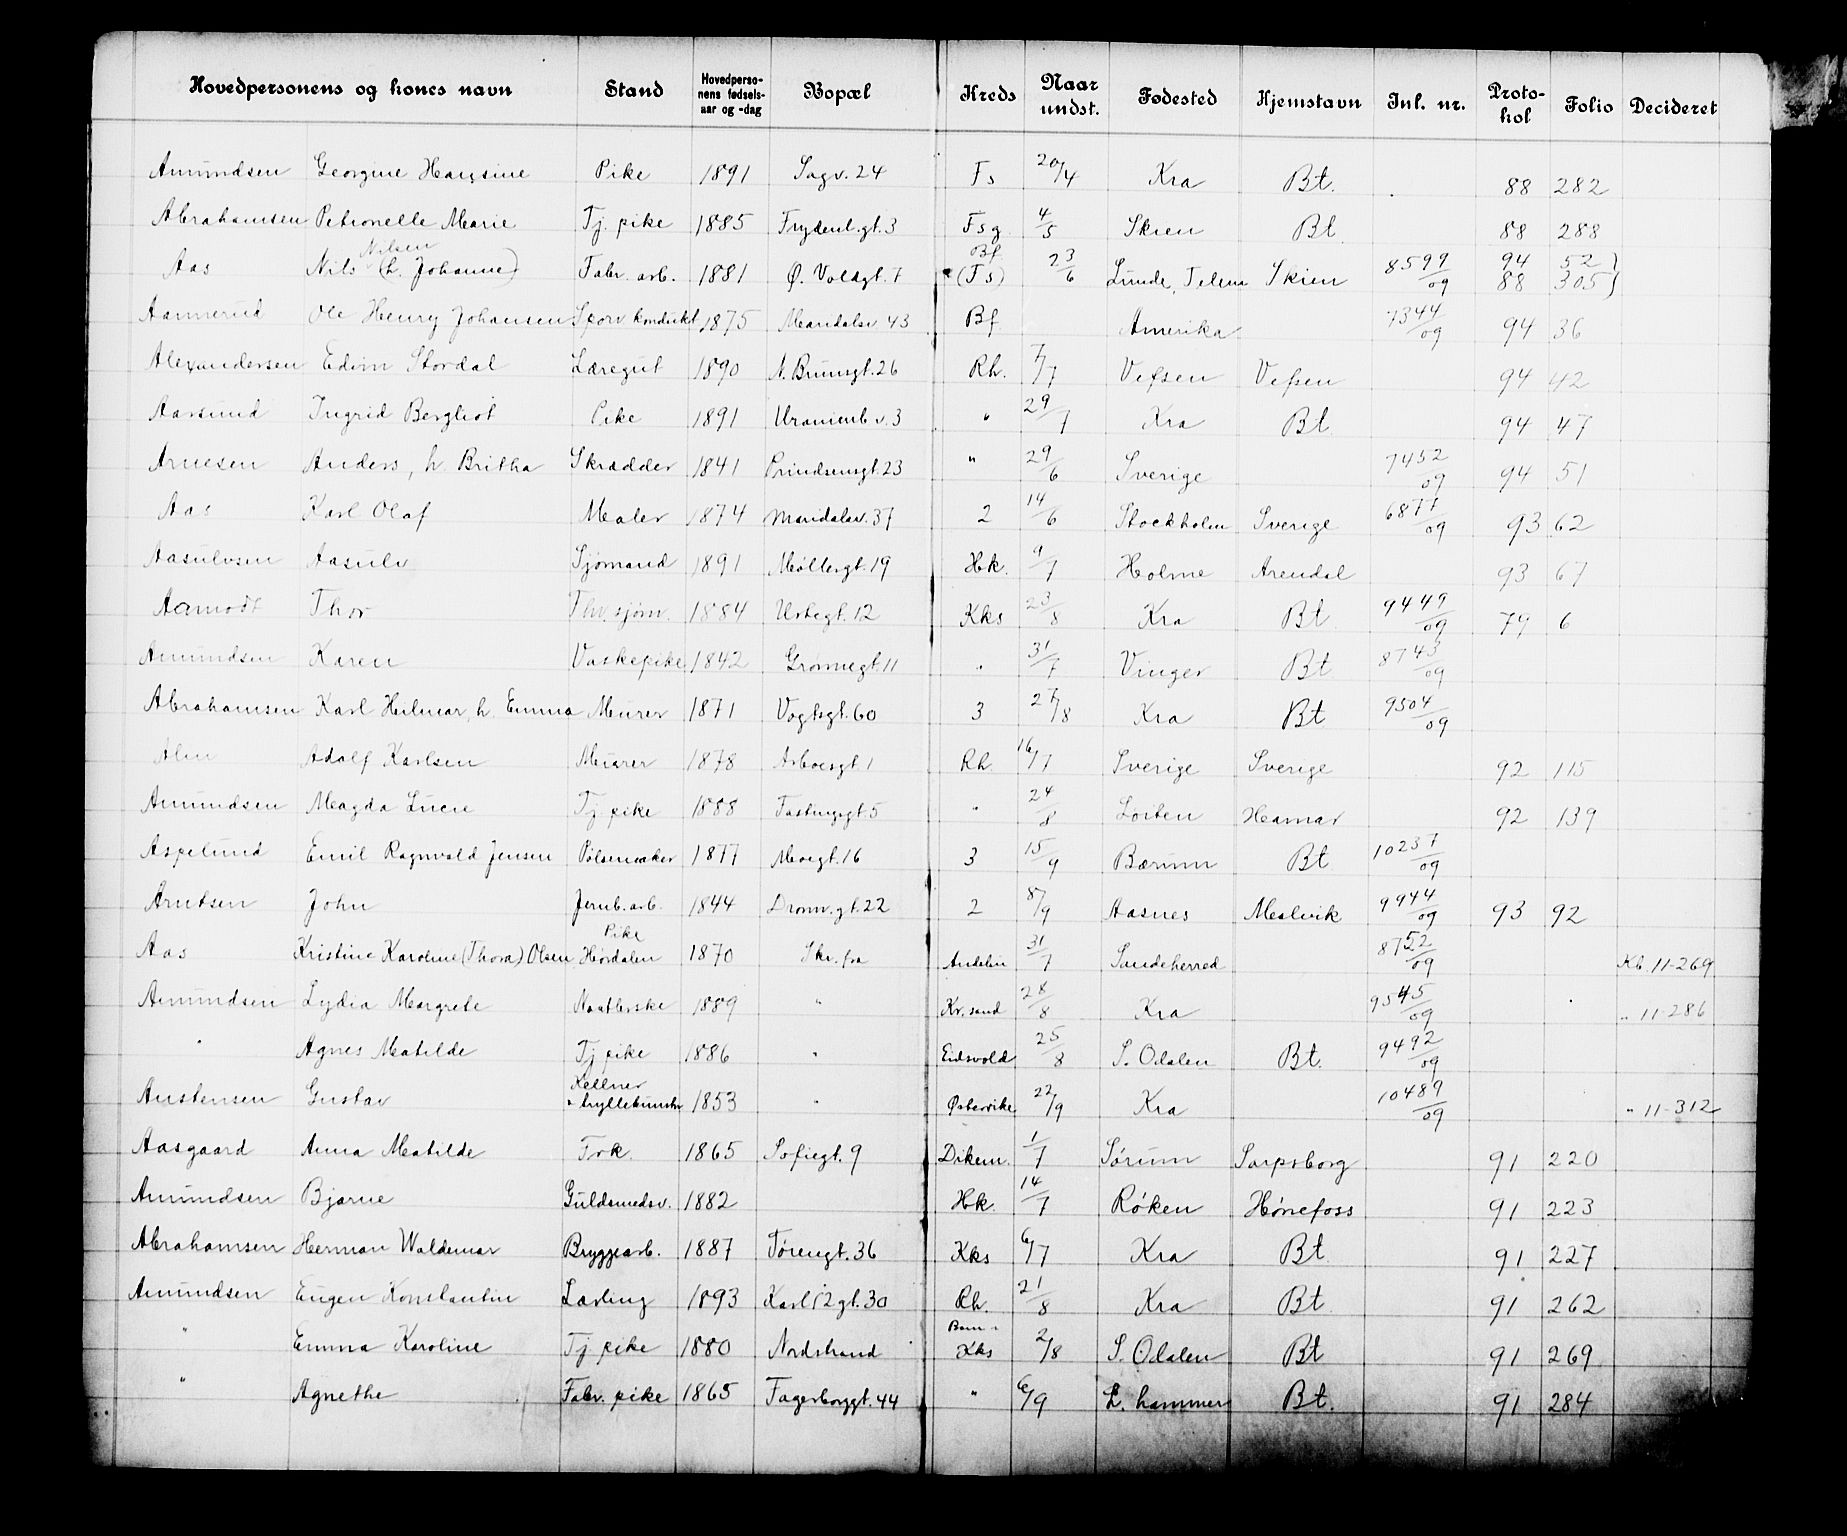 Hovedpersonens og kones navn Stand Hovedperso-nens fødsels-aar og -dag Bopæl Kreds Naar undst. Fødested Hjemstavn Inl. nr. Proto-kol Folio Decideret
Amundsen Georgine Hansine Pike 1891 Sagv. 24 Fs 20/4 Kra Bt. 88 282
Abrahamsen Petronelle Marie Tj. pike 1885 Frydenl.gt. 3 Fsg. 4/5 Skien Bt 88 288
Nilsen Bf 94 52)
Aas Nils (h. Johanne) Fabr. arb. 1881 Ø. Voldgt. 7 (Fs) 23/6 Lunde, Telem Skien 8599/09 88 305)
Aamerud Ole Henry Johansen Sporv. kondukt 1875 Maridalsv 43 Bf Amerika 7344/09 94 36
Alexandersen Edvin Stordal Læregut 1890 N. Brunsgt. 26 Rh. 7/7 Vefsen Vefsen 94 42
Aarsund Ingrid Bergliot Pike 1891 Uranienb. v. 3 " 29/7 Kra Bt 94 47
Arnesen Anders, h. Britha Skrædder 1841 Prindsensgt. 23 " 29/6 Sverige 7452/09 94 51
Aas Karl Olaf Maler 1874 Maridalsv. 37 2 14/6 Stockholm Sverige 6877/09 93 62
Aasulvsen Aasulv Sjømand 1891 Møllergt. 19 Hk. 9/7 Holme Arendal 93 67
Aamodt Thor Fhv. sjøm. 1884 Urtegt. 12 Kks 23/8 Kra Bt 9449/09 79 6
Amundsen Karen Vaskepike 1842 Grønnegt. 11 " 31/7 Vinger Bt 8743/09
Abrahamsen Karl Hilmar, h. Emma Murer 1871 Vogtsgt. 60 3 27/8 Kra Bt 9504/09
Alm Adolf Karlsen Murer 1878 Arboesgt. 1 Rh. 16/7 Sverige Sverige 92 115
Amundsen Magda Lucie Tj. pike 1888 Tostrupgt 5 " 24/8 Løiten Hamar 92 139
Aspelund Emil Ragnvald Jensen Pølsemaker 1877 Moegt. 16 3 15/9 Bærum Bt 10237/09
Arntsen John Jernb. arb. 1844 Dronn. gt. 22 2 8/9 Aasnes Malvik 9944/09 93 92
Pike
Aas Kristine Karoline (Thora) Olsen Hørdalen 1870 Skr. fra Andebu 31/7 Sandeherred 8752/09 Kb. 11-269
Amundsen Lydia Margrete Naatlerske 1889 " Kr. sand 28/8 Kra 9545/09 " 11-286
" Agnes Matilde Tj pike 1886 " Eidsvold 25/8 S. Odalen Bt. 9492/09
Kellner
Austensen Gustav tryllekunstn 1853 " Østervike 22/9 Kra 10489/09 " 11-312
Aasgaard Anna Matilde Frk. 1865 Sofiegt. 9 Dikem. 1/7 Sørum Sarpsborg 91 220
Amundsen Bjarne Guldsmedsv. 1882 Hk. 14/7 Røken Hønefoss 91 223
Abrahamsen Herman Waldemar Bryggearb. 1887 Tøiengt. 36 Kks 6/7 Kra Bt 91 227
Amundsen Eugen Konstantin Lærling 1893 Karl 12 gt. 30 Rh. 21/8 Kra Bt 91 262
" Emma Karoline Tj pike 1880 Nordstrand Kks 2/8 S. Odalen Bt 91 269
" Agnethe Fabr. pike 1865 Fagerborggt. 44 " 6/9 L. hammer Bt. 91 284